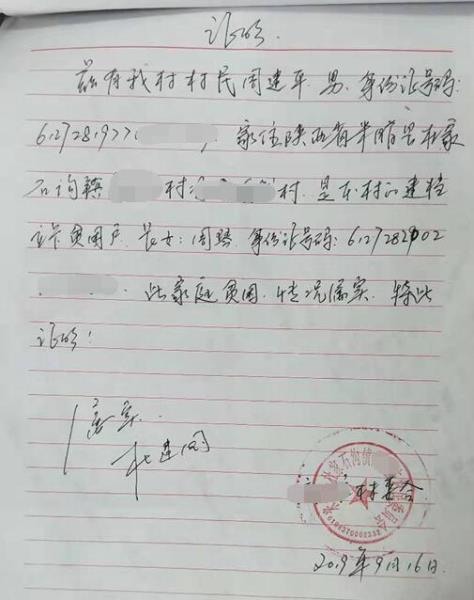 证明
兹有我村村民周建平,男,身份证号码:
612728197
,家住陕西省米脂县杜家
石沟镇 村 村,是本村的建档
立卡贫困户,长女:周 身份证号码:6127282002
此家庭贫困,情况属实,特此
证明!
属实
杜建
村委会
2019年9月16日